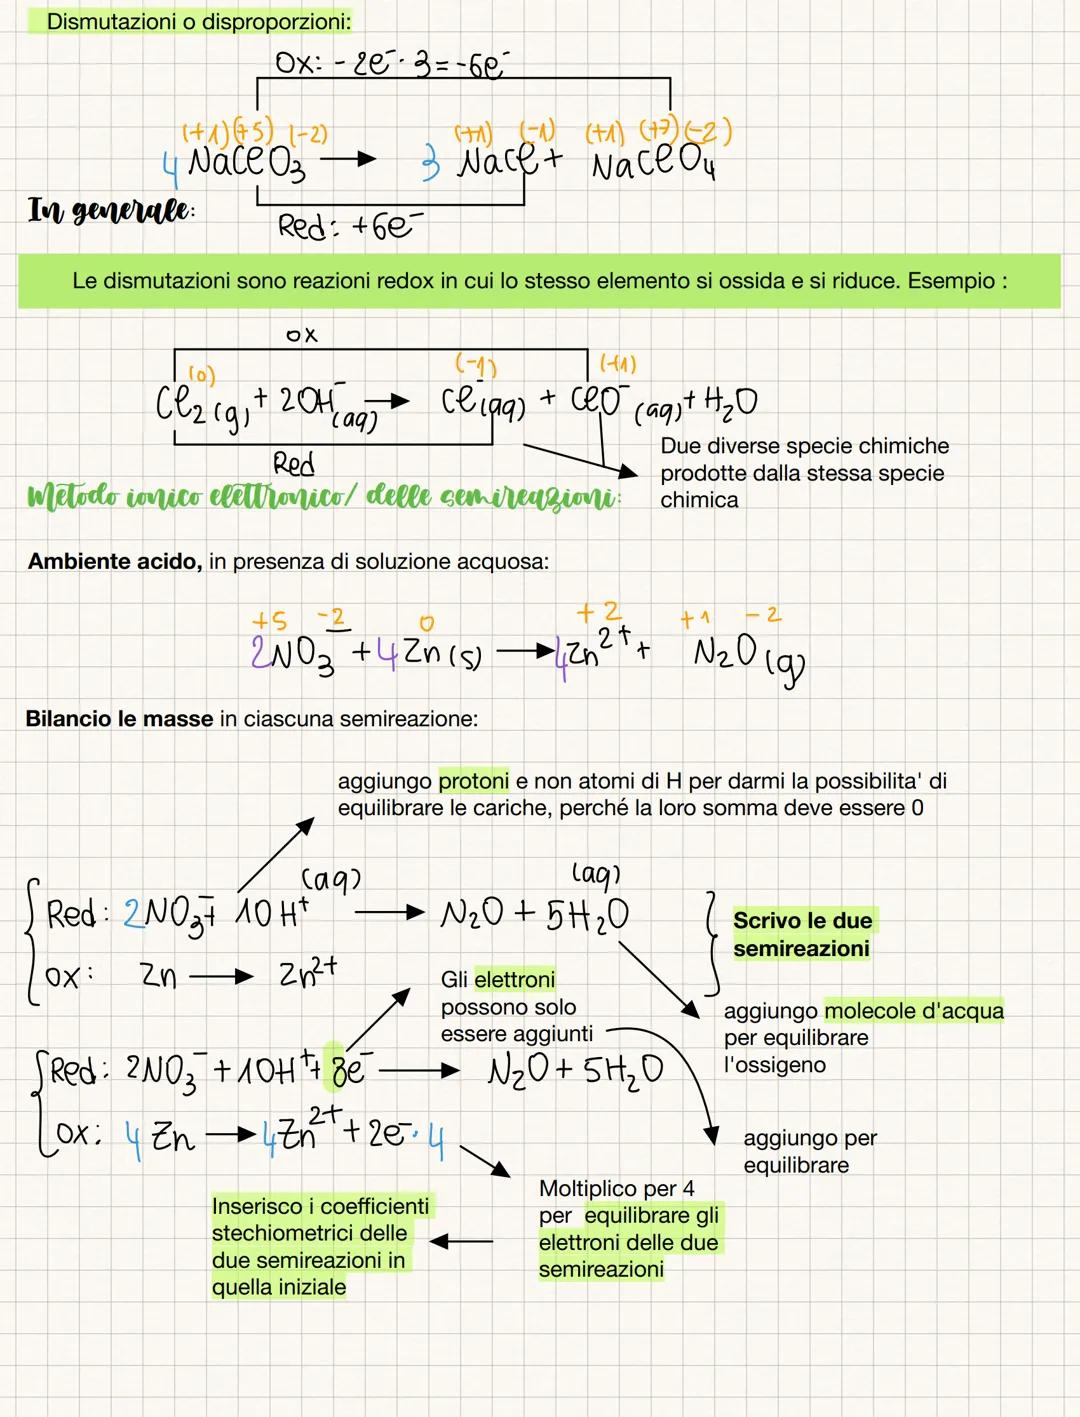 Dismutazioni o disproporzioni:
Ox: - 2e⁻· 3 = -6e⁻
(+1) (+5) (-2) (+1) (-1) (+1) (+7) (-2)
4 NaClO₃ → 3 NaCl + NaClO₄
In generale:
Red: +6e⁻
Le dismutazioni sono reazioni redox in cui lo stesso elemento si ossida e si riduce. Esempio :
ox
(0) (-1) (+1)
Cl₂(g) + 2OH⁻(aq) → Cl⁻(aq) + ClO⁻(aq) + H₂O
Red
Due diverse specie chimiche
prodotte dalla stessa specie
chimica
Metodo ionico elettronico/ delle semireazioni:
Ambiente acido, in presenza di soluzione acquosa:
+5 -2 0 +2 +1 -2
2NO₃⁻ + 4Zn(s) → 4Zn²⁺ + N₂O(g)
Bilancio le masse in ciascuna semireazione:
aggiungo protoni e non atomi di H per darmi la possibilita' di
equilibrare le cariche, perché la loro somma deve essere 0
(aq) (aq)
Red: 2NO₃⁻ + 10H⁺ → N₂O + 5H₂O
ox: Zn → Zn²⁺
Scrivo le due
semireazioni
Gli elettroni
possono solo
essere aggiunti
aggiungo molecole d'acqua
per equilibrare
l'ossigeno
Red: 2NO₃⁻ + 10H⁺ + 8e⁻ → N₂O + 5H₂O
ox: 4 Zn → 4Zn²⁺ + 2e⁻· 4
aggiungo per
equilibrare
Moltiplico per 4
per equilibrare gli
elettroni delle due
semireazioni
Inserisco i coefficienti
stechiometrici delle
due semireazioni in
quella iniziale